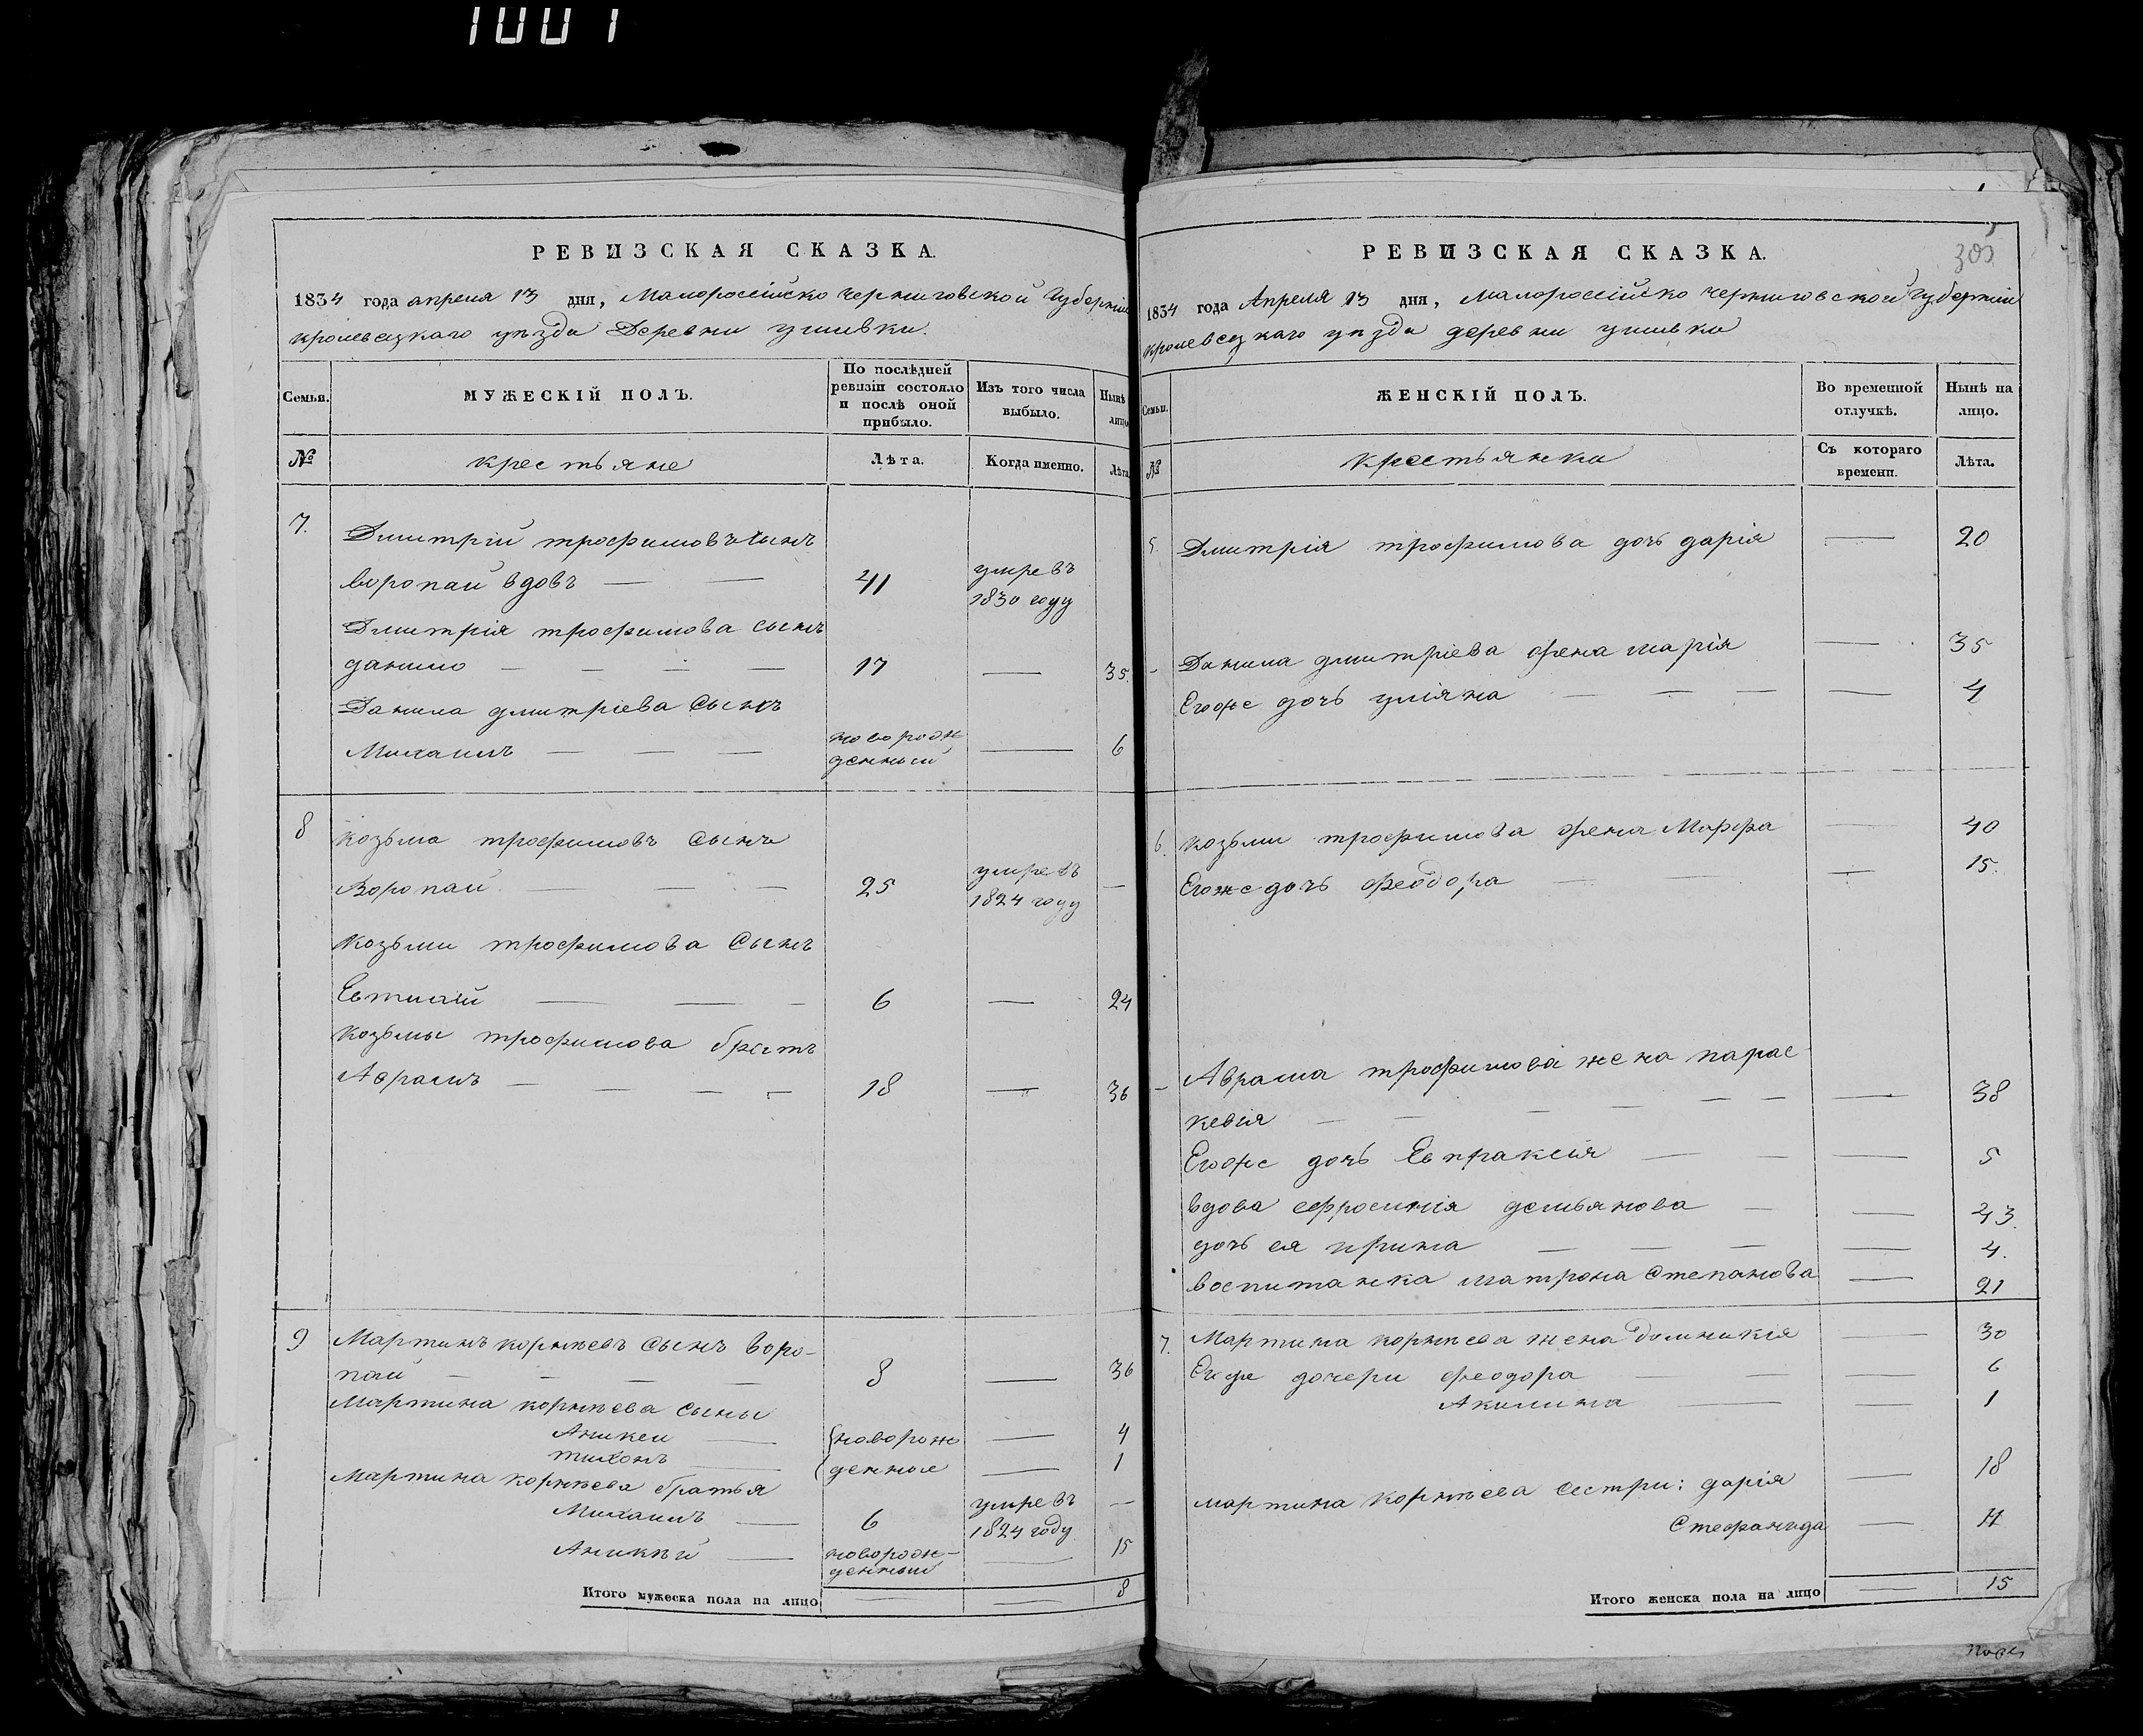 1001
РЕВИЗСКАЯ СКАЗКА.
1834 года апреля 13 дня, Малороссійско черниговской Губерніи
кролевецкаго уѣзда Деревни ушивки.
Семьи.
МУЖЕСКІЙ ПОЛЪ.
По послѣдней ревизіи состояло и послѣ оной прибыло.
Изъ того числа выбыло.
Нынѣ лицо
№
крестьяне
Лѣта.
Когда именно.
Лѣта
7. Дмитрій трофимовъ сынъ
воропай вдовъ — — 41 умре въ 1830 году
Дмитрія трофимова сынъ
данило — — — — 17 — 35.
Данила дмитріева сынъ
Михаилъ — — — новорожденный — 6
8 козьма трофимовъ сынъ
Воропай — — — 25 умре въ 1824 году —
козьми трофимова сынъ
Евтихій — — — 6 — 24
козьмы трофимова братъ
Аврамъ — — — — 18 — 36
9 Мартинъ корнѣевъ сынъ воро-
пай — — — — 8 — 36
Мартина корнѣева сыны
Аникеи — {новорож — 4
тихонъ — {денные — 1
Мартина корнѣева братья
Михаилъ — 6 умре въ 1824 году —
Аникѣй — новорож-денный — 15
Итого мужеска пола на лицо — — 8
РЕВИЗСКАЯ СКАЗКА.
305
1834 года Апреля 13 дня, малороссійско черниговской Губерніи
кролевецкаго уѣзда деревни ушивки
Семьи.
ЖЕНСКІЙ ПОЛЪ.
Во временной отлучкѣ.
Нынѣ на лицо.
№
крестьянки
Съ котораго времени.
Лѣта.
5. Дмитрія трофимова дочь дарія — 20
- Данила дмитріева жена марія — 35
Егоже дочь уліяна — — — — 4
6. козьми трофимова жена Марфа — 40
Егоже дочь феодора — — — 15.
- Аврама трофимова жена парас-
кевія — — — — — — — 38
Егоже дочь Евпраксія — — — 5
вдова ефросинія демьянова — — 43.
дочь ея ирина — — — — 4.
воспитанка матрона степанова — 21
7. Мартина корнѣева жена домникія — 30
Его же дочери феодора — — — 6
Акилина — — 1
мартина корнѣева сестри: дарія — 18
Стефанида —
Итого женска пола на лицо — 15